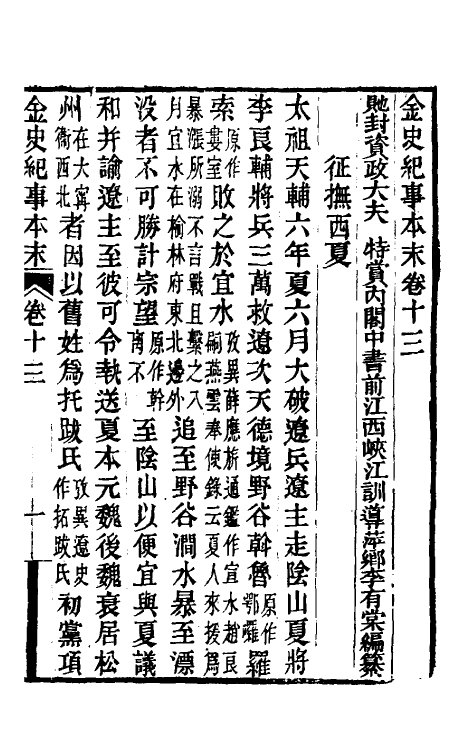 金史紀事本末卷十三
貤封資政大夫　特賞內閣中書前江西峽江訓導萍鄉李有棠編纂
征撫西夏
太祖天輔六年夏六月大破遼兵遼主走陰山夏將
李良輔將兵三萬救遼次天德境野谷斡魯原作鄂囉羅
索原作婁室敗之於宜水攷異薛應旂通鑑作宜水趙良嗣燕雲奉使錄云夏人來援爲
暴漲所溺不言戰且繫之入月宜水在榆林府東北邊外追至野谷澗水暴至漂
沒者不可勝計宗望原作斡离不至陰山以便宜與夏議
和并諭遼主至彼可令執送夏本元魏後魏衰居松
州在大寧衞西北者因以舊姓爲托跋氏攷異遼史作拓跋氏初黨項
金史紀事本末　卷十三　一